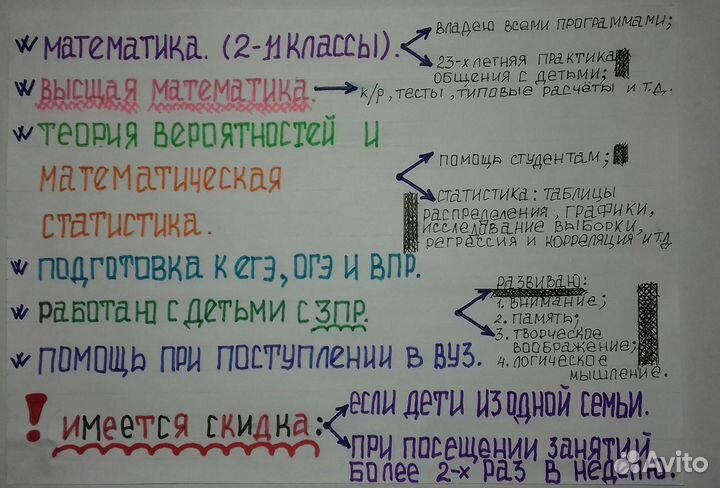 W МАТЕМАТИКА. (2-11 КЛАССЫ).
ВЛАДЕЮ ВСЕМИ ПРОГРАММАМИ;
23-х ЛЕТНЯЯ ПРАКТИКА
ОБЩЕНИЯ С ДЕТЬМИ;
W ВЫСШАЯ МАТЕМАТИКА.
К/Р, ТЕСТЫ, ТИПОВЫЕ РАСЧЁТЫ И Т.Д.
W ТЕОРИЯ ВЕРОЯТНОСТЕЙ И
МАТЕМАТИЧЕСКАЯ
СТАТИСТИКА.
ПОМОЩЬ СТУДЕНТАМ;
СТАТИСТИКА: ТАБЛИЦЫ
РАСПРЕДЕЛЕНИЯ, ГРАФИКИ,
ИССЛЕДОВАНИЕ ВЫБОРКИ,
РЕГРЕССИЯ И КОРРЕЛЯЦИЯ И ТД
W ПОДГОТОВКА К ЕГЭ, ОГЭ И ВПР.
W РАБОТАЮ С ДЕТЬМИ С ЗПР.
РАЗВИВАЮ:
1. ВНИМАНИЕ;
2. ПАМЯТЬ;
3. ТВОРЧЕСКОЕ
ВООБРАЖЕНИЕ;
4. ЛОГИЧЕСКОЕ
МЫШЛЕНИЕ.
W ПОМОЩЬ ПРИ ПОСТУПЛЕНИИ В ВУЗ.
! ИМЕЕТСЯ СКИДКА:
ЕСЛИ ДЕТИ ИЗ ОДНОЙ СЕМЬИ.
ПРИ ПОСЕЩЕНИИ ЗАНЯТИЙ
БОЛЕЕ 2-х РАЗ В НЕДЕЛЮ.
Avito